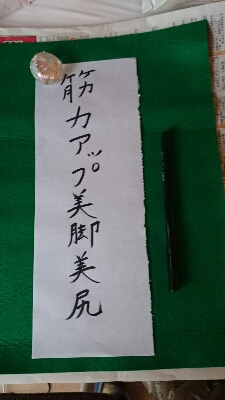 筋力アップ美脚美尻